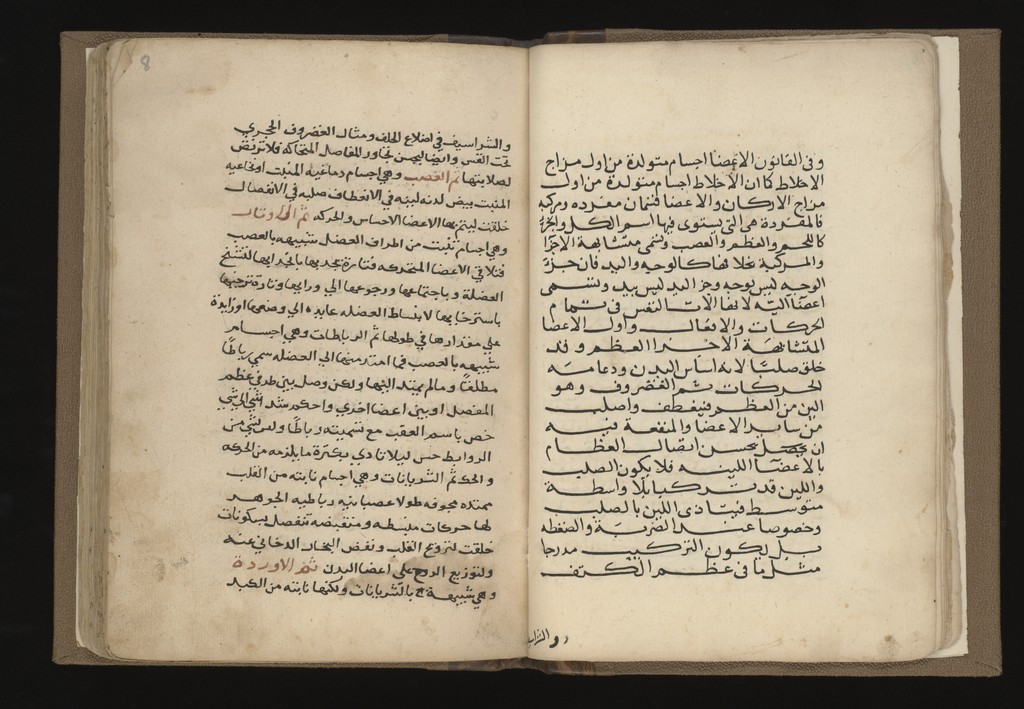 وفى القانون الاعضا اجسام متولدة من اول مزاج
الاخلاط كما ان الاخلاط اجسام متولدة من اول
مزاج الاركان والاعضا قسمان مفرده ومركبه
فالمفردة هى التى يستوى فيها اسم الكل والجزؤ
كاللحم والعظم والعصب وتسمى متشابهة الاجزا
والمركبة بخلافها كالوجه واليد فان جزؤ
الوجه ليس بوجه وجزؤ اليد ليس بيد وتسمى
اعضا اليه لانها الات النفس فى تمام
الحركات والافعال واول الاعضا
المتشابهة الاجزا العظم وقد
خلق صلبا لانه اساس البدن ودعامة
الحركات ثم الغضروف وهو
الين من العظم فينعطف واصلب
من ساير الاعضا والمنفعة فيه
ان يحصل بحسن اتصال العظام
بالاعضا اللينه فلا يكون الصلب
واللين قد تركبا بلا واسطة
متوسط فيتاذى اللين بالصلب
وخصوصا عند الضربة والضغطه
بل يكون التركيب مدرجا
مثل ما فى عظم الكتف
والشراسيف في اضلاع الخلف ومثال الغضروف الحنجري
تحت القس وايضا ليحسن تجاور المفاصل المتحاكه فلا ترتض
لصلابتها ثم العصب وهي اجسام دماغية المنبت او نخاعيه
المنبت بيض لدنه لينه في الانعطاف صلبه في الانفصال
خلقت ليتم بها الاعضا الاحساس والحركه ثم الاوتار
وهي اجسام تنبت من اطراف العضل شبيهه بالعصب
فتلاقي الاعضا المتحركه فتارة تجذبها بانجذابها لتشنج
العضلة وباجتماعها ورجوعها الي ورايها وتارة ترخيها
باسترخايها لانبساط العضله عايده الي وضعها او زايدة
علي مقدارها في طولها ثم الرباطات وهي اجسام
شبيهه بالعصب فما امتد منها الي العضله سمي رباطا
مطلقا وما لم يمتد اليها ولكن وصل بين طرفي عظم
المفصل او بين اعضا اخري واحكم شد شي الي شي
خص باسم العقب مع تسميته رباطا وليس لشي من
الروابط حس ليلا تتاذي بكثرة ما يلزمه من الحركه
والحك ثم الشريانات وهي اجسام نابته من القلب
ممتده مجوفه طولا عصبانيه رباطيه الجوهر
لها حركات منبسطه ومنقبضه تنفصل بسكونات
خلقت لترويح القلب ونفض البخار الدخاني عنه
ولتوزيع الروح علي اعضا البدن ثم الاوردة
وهي شبيهة بالشريانات ولكنها نابته من الكبد
8